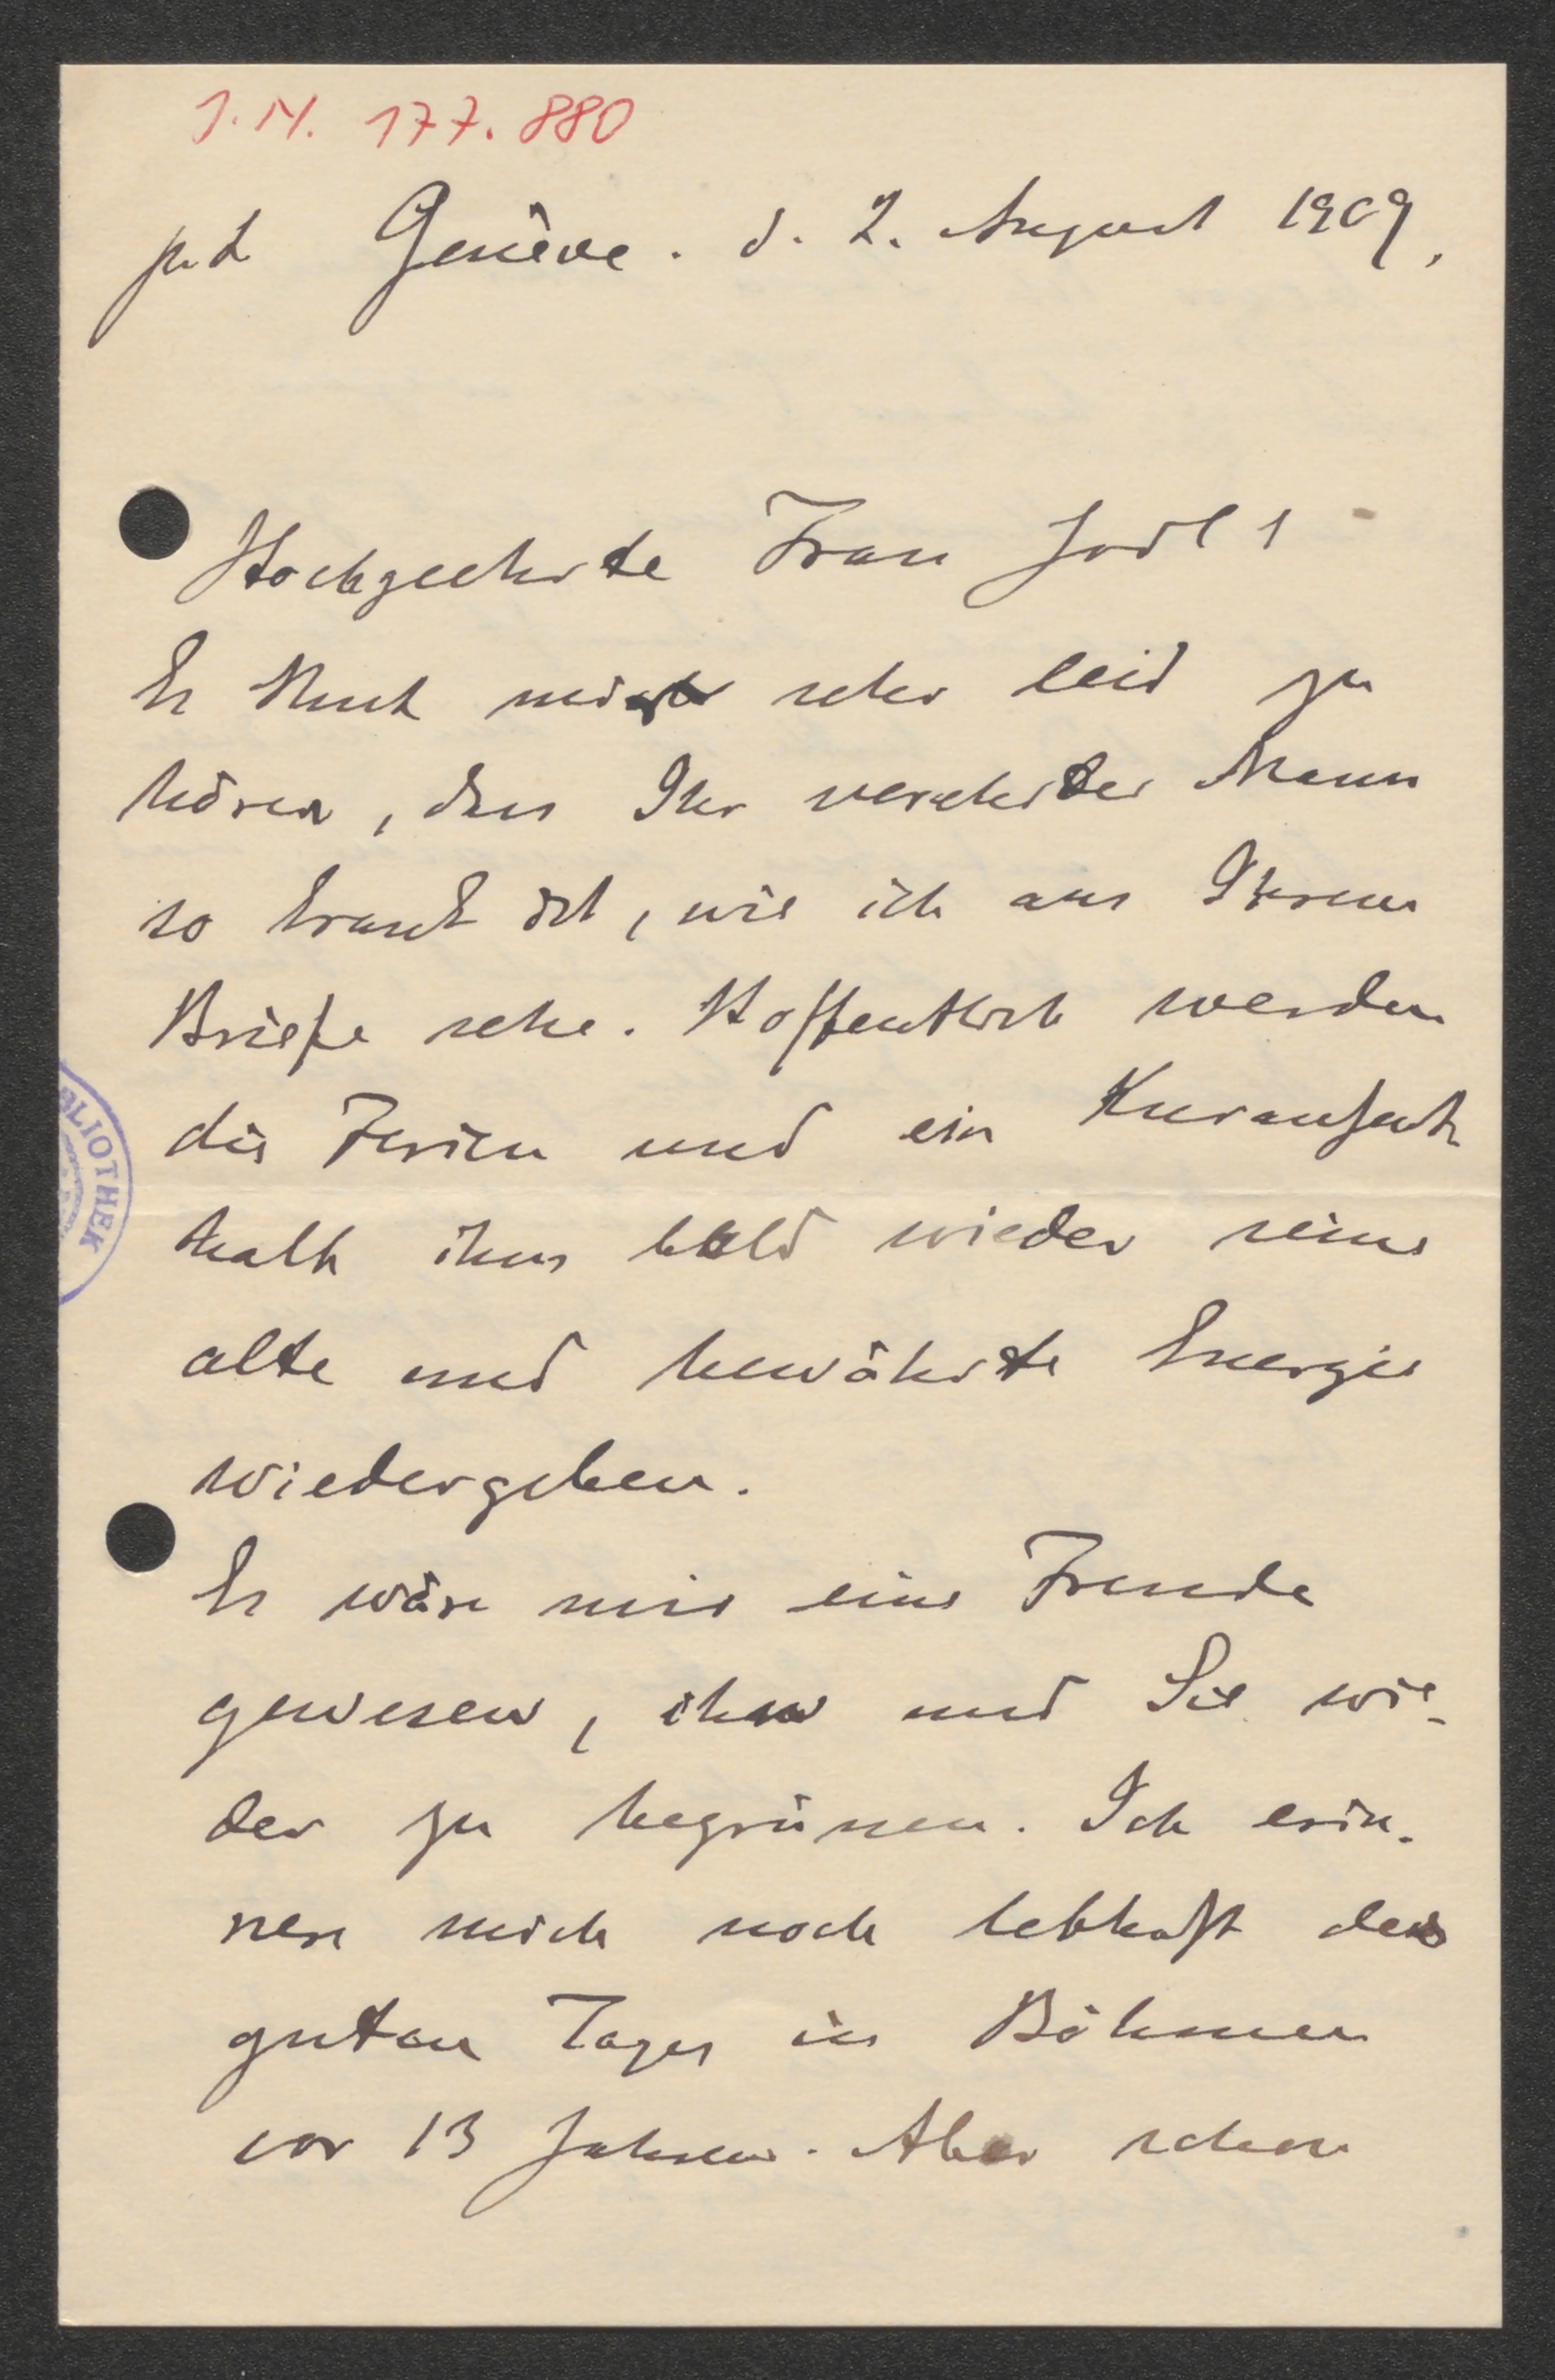 J.N. 177.880
p.t. Genève. d. 2. August 1909.
Hochgeehrte Frau Jodl!
Es thut mir sehr leid zu
hören, dass Ihr verehrter Mann
so krank ist, wie ich aus Ihrem
Briefe sehe. Hoffentlich werden
die Ferien und ein Kuraufent
halt ihm bald wieder seine
alte und bewährte Energie
wiedergeben.
Es wäre mir eine Freude
gewesen, ihn und Sie wie-
der zu begrüssen. Ich erin-
nere mich noch lebhaft des
guten Tages in Böhmen
vor 13 Jahren. Aber schon
BLIOTHEK